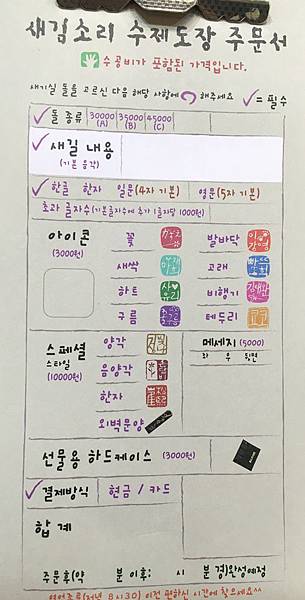 새김소리 수제도장 주문서
수공비가 포함된 가격입니다.
새기실 돌을 고르신 다음 해당 사항에 해주세요 ✓= 필수
✓돌 종류 30000 (A) 35000 (B) 45000 (C)
✓새길 내용
(기본 음각)
✓한글 한자 일문(4자 기본) 영문(5자 기본)
초과 글자수(기본글자수에 추가 1글자당 1000원)
아이콘
(3000원)
꽃 발바닥
새싹 고래
하트 비행기
구름 테두리
스페셜
스타일
(10000원)
양각
음양각
한자
외벽문양
메세지 (5000)
좌 우 뒷면
선물용 하드케이스 (3000원)
✓결제방식 현금 / 카드
합계
주문후(약 분 이후: 시 분경)완성예정
영업종료(저녁 8시30) 이전 편하신 시간에 찾으세요^^